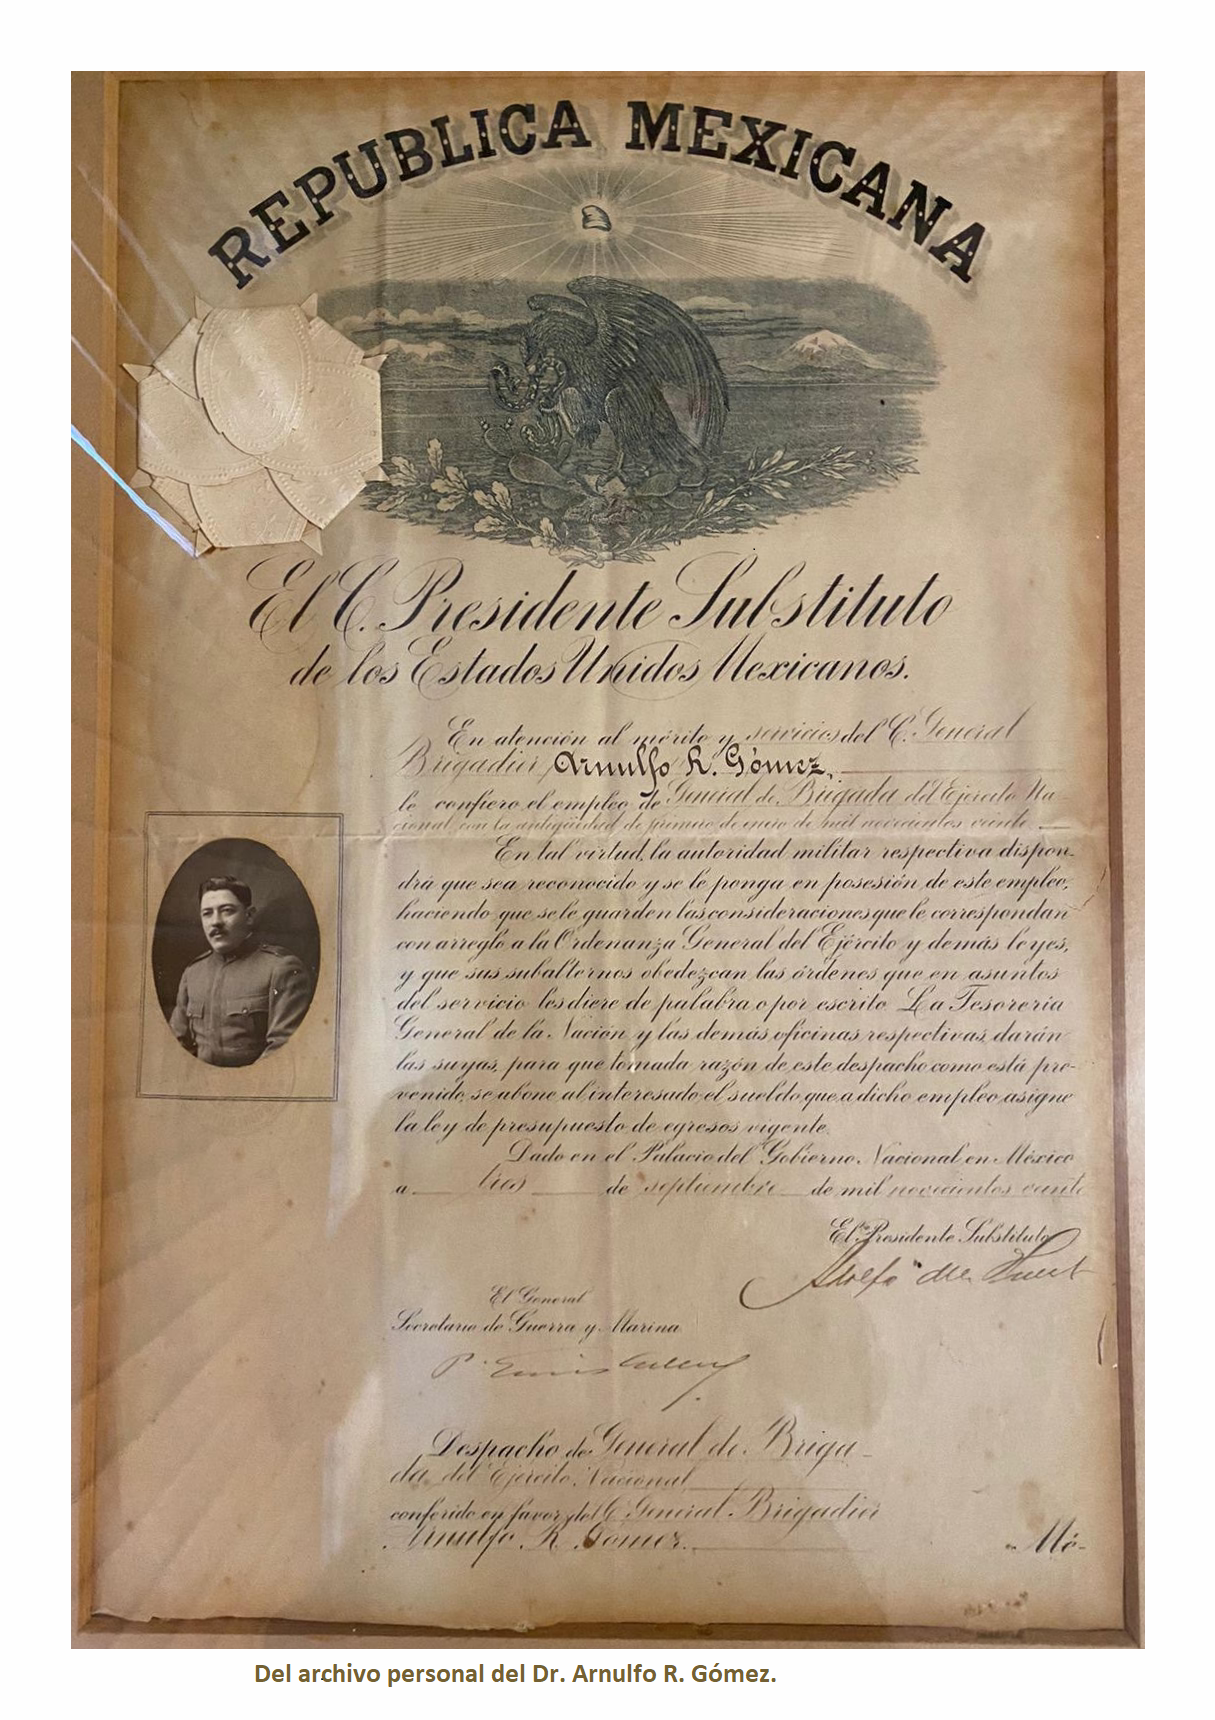 REPUBLICA MEXICANA
El C. Presidente Substituto
de los Estados Unidos Mexicanos.
En atención al mérito y servicios del C. General
Brigadier Arnulfo R. Gómez,
le confiero el empleo de General de Brigada del Ejército Na-
cional con la antigüedad de primero de enero de mil novecientos veinte
En tal virtud, la autoridad militar respectiva dispon-
drá que sea reconocido y se le ponga en posesión de este empleo,
haciendo que se le guarden las consideraciones que le correspondan
con arreglo a la Ordenanza General del Ejército y demás leyes,
y que sus subalternos obedezcan las órdenes que en asuntos
del servicio les diere de palabra o por escrito. La Tesorería
General de la Nación y las demás oficinas respectivas, darán
las suyas, para que tomada razón de este despacho como está pre-
venido, se abone al interesado el sueldo que a dicho empleo asigne
la ley de presupuesto de egresos vigente.
Dado en el Palacio del Gobierno Nacional en México
a tres de septiembre de mil novecientos veinte
El Presidente Substituto
Adolfo de la Huerta
El General
Secretario de Guerra y Marina
Despacho de General de Briga-
da del Ejército Nacional
conferido en favor del C. General Brigadier
Arnulfo R. Gómez.
Del archivo personal del Dr. Arnulfo R. Gómez.